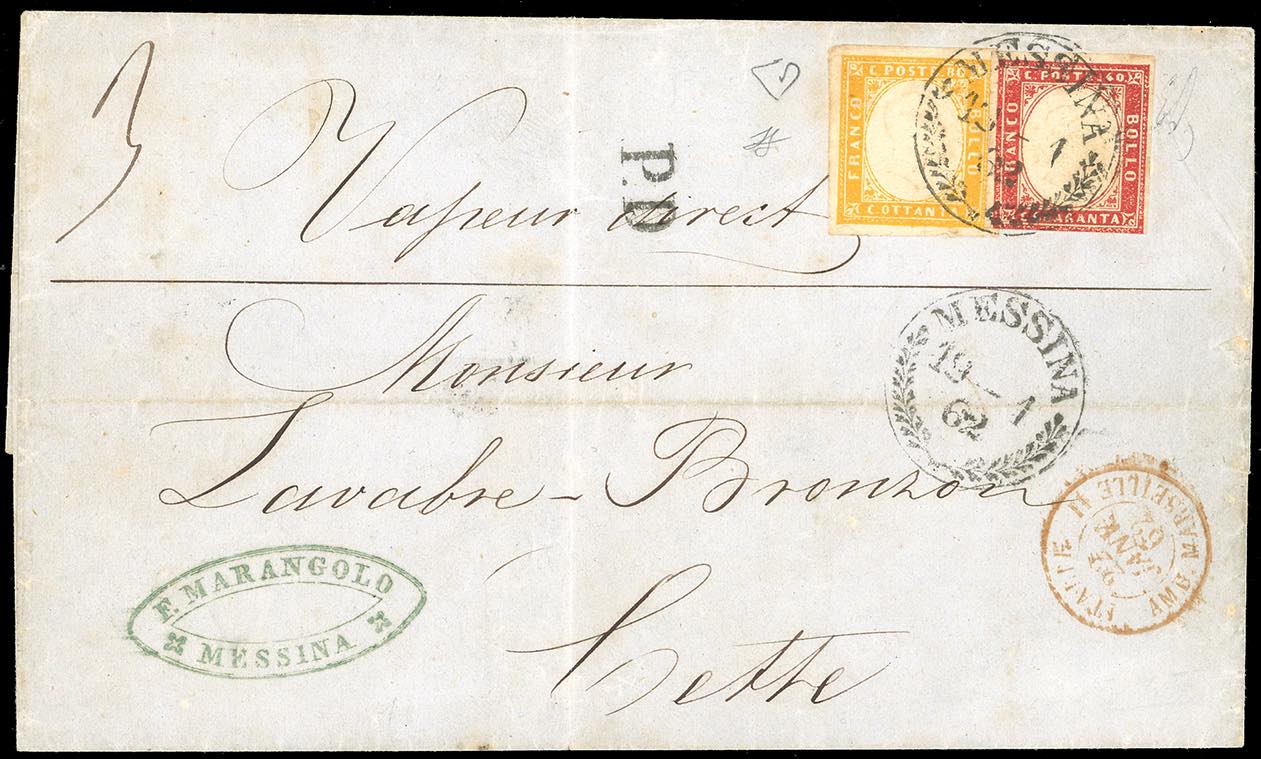 3
Vapeur direct
P.D
C. POSTE 80
FRANCO
BOLLO
C. OTTANTA
C. POSTE 40
FRANCO
BOLLO
C. QUARANTA
MESSINA
19 - 1
62
Monsieur
MESSINA
19 - 1
62
Lavabre - Bronzon
ITALIE
JANV.
62
AMB. MARSEILLE
F. MARANGOLO
MESSINA
Cette